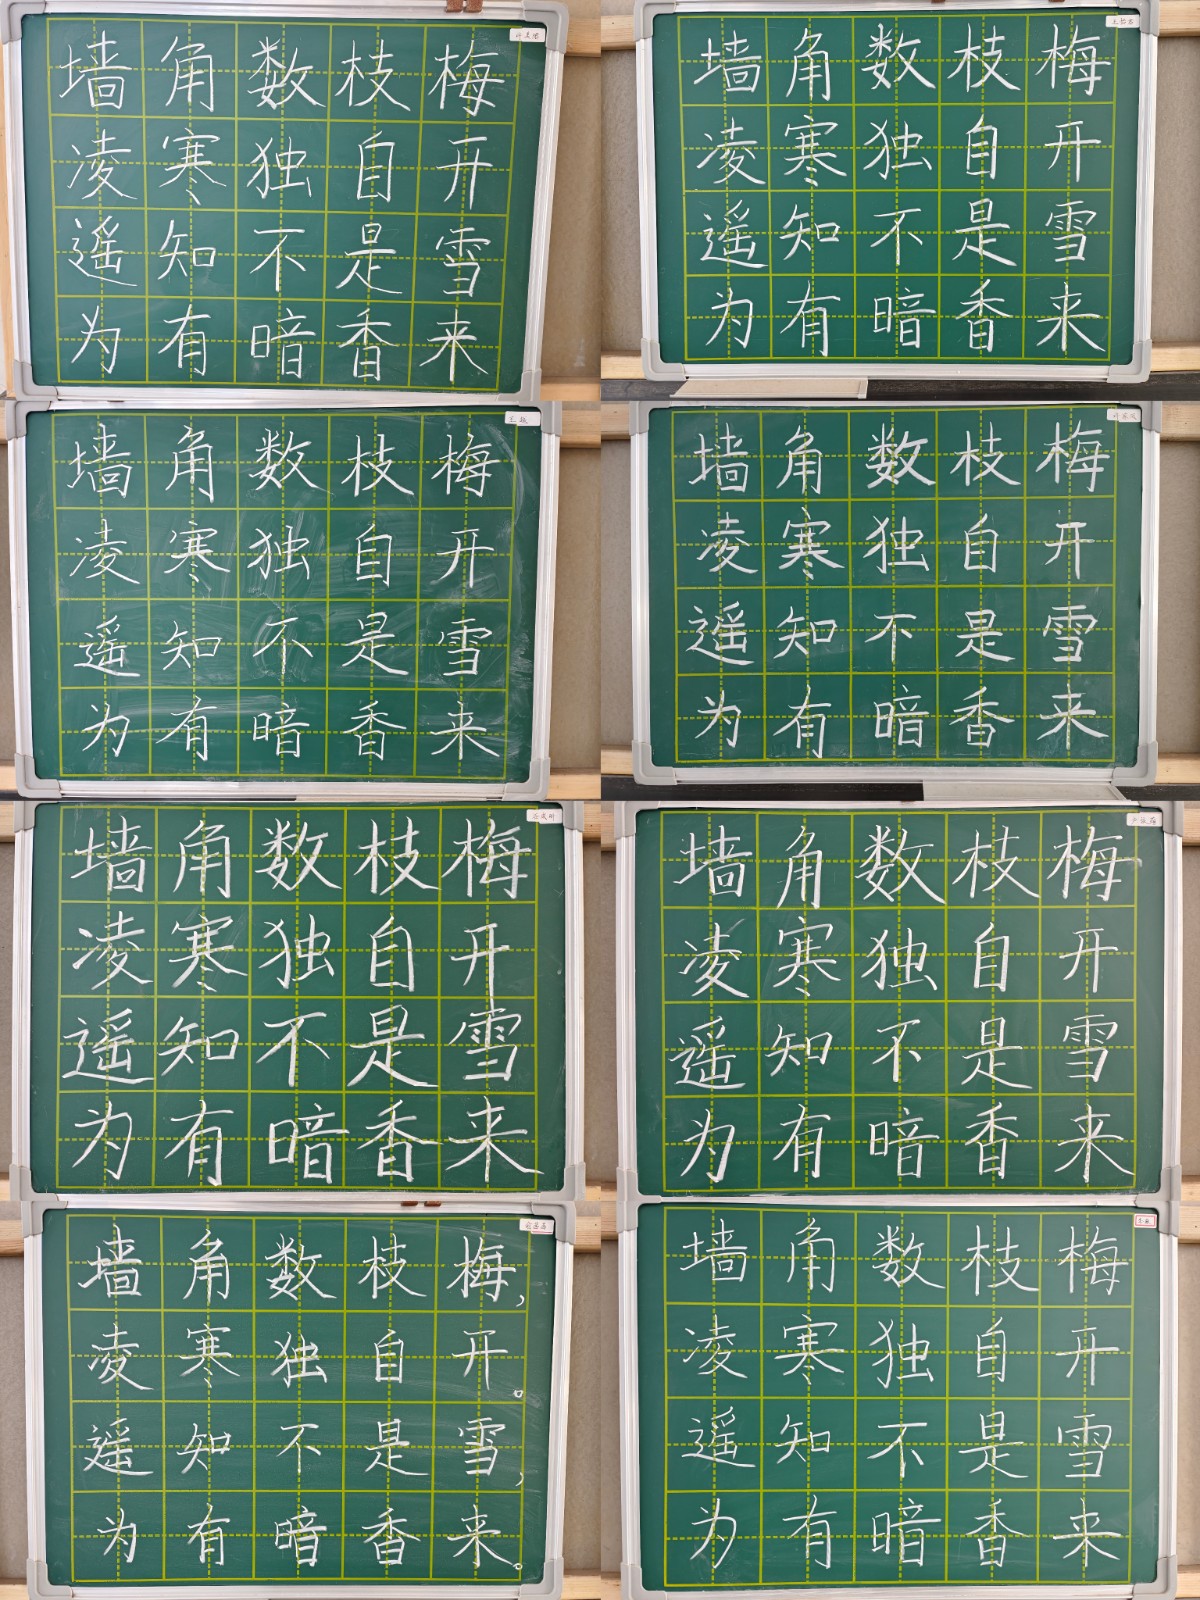 墙角数枝梅
凌寒独自开
遥知不是雪
为有暗香来
墙角数枝梅
凌寒独自开
遥知不是雪
为有暗香来
墙角数枝梅
凌寒独自开
遥知不是雪
为有暗香来
墙角数枝梅
凌寒独自开
遥知不是雪
为有暗香来
墙角数枝梅
凌寒独自开
遥知不是雪
为有暗香来
墙角数枝梅
凌寒独自开
遥知不是雪
为有暗香来
墙角数枝梅,
凌寒独自开。
遥知不是雪,
为有暗香来。
墙角数枝梅
凌寒独自开
遥知不是雪
为有暗香来